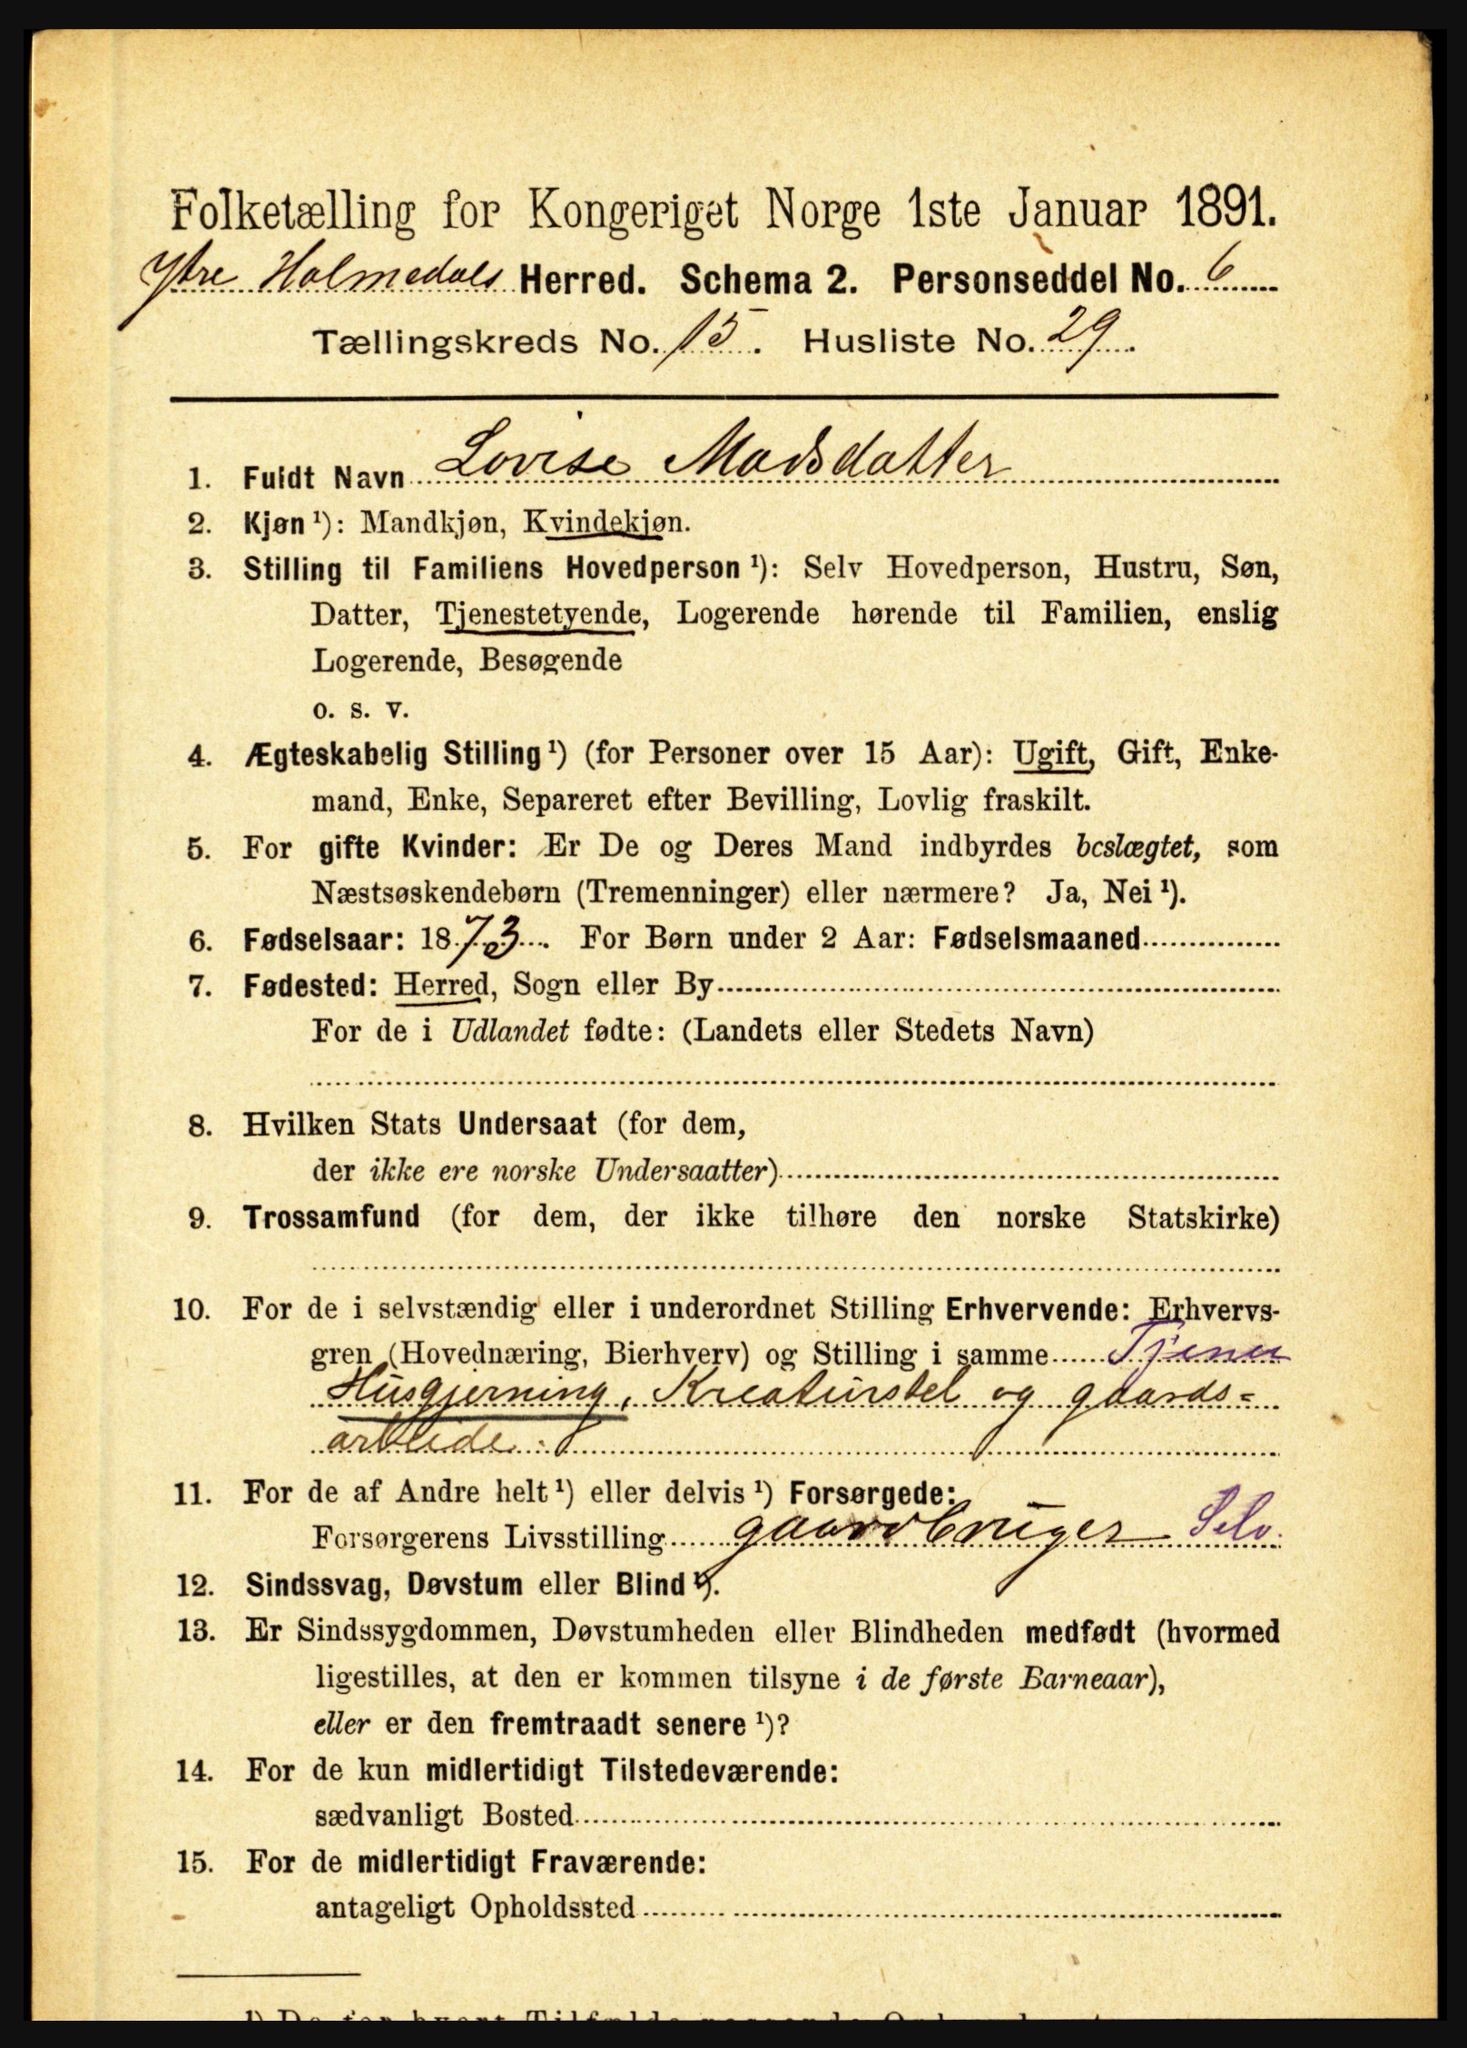 Folketælling for Kongeriget Norge 1ste Januar 1891.
Ytre Holmedals Herred. Schema 2. Personseddel No. 6
Tællingskreds No. 15. Husliste No. 29.
1. Fuldt Navn Lovise Madsdatter
2. Kjøn ¹): Mandkjøn, Kvindekjøn.
3. Stilling til Familiens Hovedperson ¹): Selv Hovedperson, Hustru, Søn,
Datter, Tjenestetyende, Logerende hørende til Familien, enslig
Logerende, Besøgende
o. s. v.
4. Ægteskabelig Stilling ¹) (for Personer over 15 Aar): Ugift, Gift, Enke-
mand, Enke, Separeret efter Bevilling, Lovlig fraskilt.
5. For gifte Kvinder: Er De og Deres Mand indbyrdes beslægtet, som
Næstsøskendebørn (Tremenninger) eller nærmere? Ja, Nei ¹).
6. Fødselsaar: 1873. For Børn under 2 Aar: Fødselsmaaned
7. Fødested: Herred, Sogn eller By
For de i Udlandet fødte: (Landets eller Stedets Navn)
8. Hvilken Stats Undersaat (for dem,
der ikke ere norske Undersaatter)
9. Trossamfund (for dem, der ikke tilhøre den norske Statskirke)
10. For de i selvstændig eller i underordnet Stilling Erhvervende: Erhvervs-
gren (Hovednæring, Bierhverv) og Stilling i samme Tjener
Husgjerning, Kreaturstel og gaards=
arbeide.
11. For de af Andre helt ¹) eller delvis ¹) Forsørgede:
Forsørgerens Livsstilling gaardbruger Selv.
12. Sindssvag, Døvstum eller Blind ¹).
13. Er Sindssygdommen, Døvstumheden eller Blindheden medfødt (hvormed
ligestilles, at den er kommen tilsyne i de første Barneaar),
eller er den fremtraadt senere ¹)?
14. For de kun midlertidigt Tilstedeværende:
sædvanligt Bosted
15. For de midlertidigt Fraværende:
antageligt Opholdssted